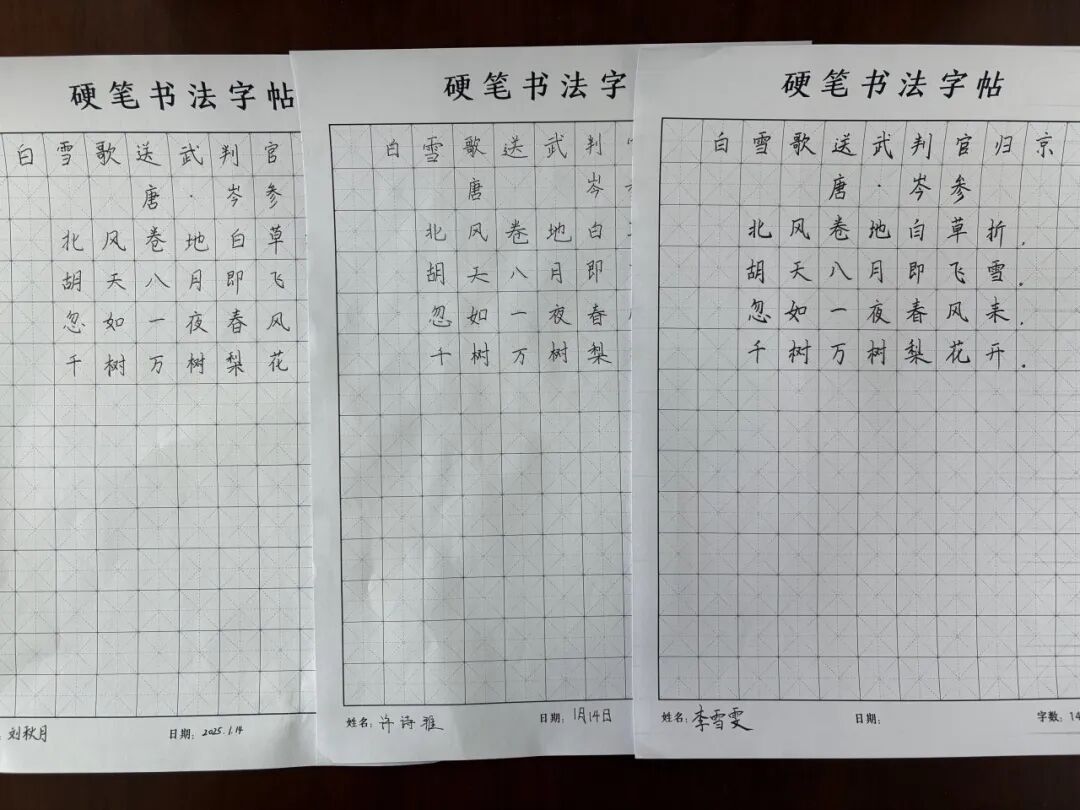 硬笔书法字帖
白雪歌送武判官
唐·岑参
北风卷地白草
胡天八月即飞
忽如一夜春风
千树万树梨花
刘秋月
日期: 2025.1.14
硬笔书法字
白雪歌送武判
唐 岑
北风卷地白
胡天八月即
忽如一夜春
千树万树梨
姓名: 许诗雅
日期: 1月14日
硬笔书法字帖
白雪歌送武判官归京
唐·岑参
北风卷地白草折.
胡天八月即飞雪.
忽如一夜春风来.
千树万树梨花开.
姓名: 李雪雯
日期:
字数: 14